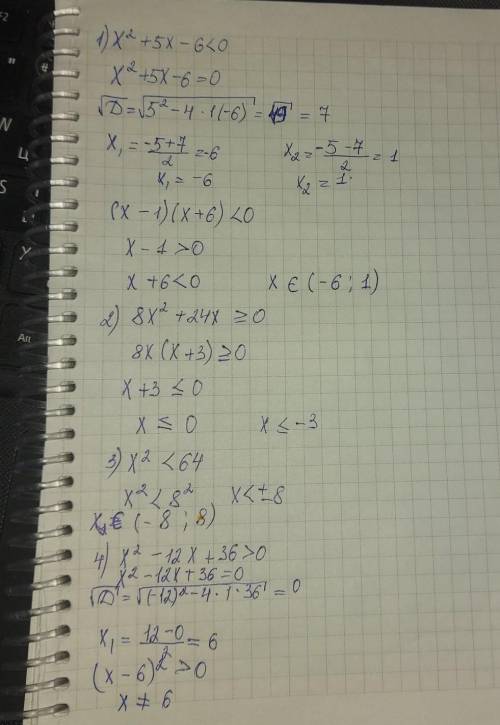 1) x² + 5x - 6 < 0
x² + 5x - 6 = 0
√D = √5² - 4 · 1(-6) = √49 = 7
x₁ = -5+7/2 = -6 x₂ = -5-7/2 = 1
x₁ = -6 x₂ = 1
(x - 1)(x + 6) < 0
x - 1 > 0
x + 6 < 0 x ∈ (-6 ; 1)
2) 8x² + 24x ≥ 0
8x(x + 3) ≥ 0
x + 3 ≤ 0
x ≤ 0 x ≤ -3
3) x² < 64
x² < 8² x < ±8
x ∈ (-8 ; 8)
4) x² - 12x + 36 > 0
x² - 12x + 36 = 0
√D = √(-12)² - 4 · 1 · 36 = 0
x₁ = 12-0/2 = 6
(x - 6)² > 0
x ≠ 6